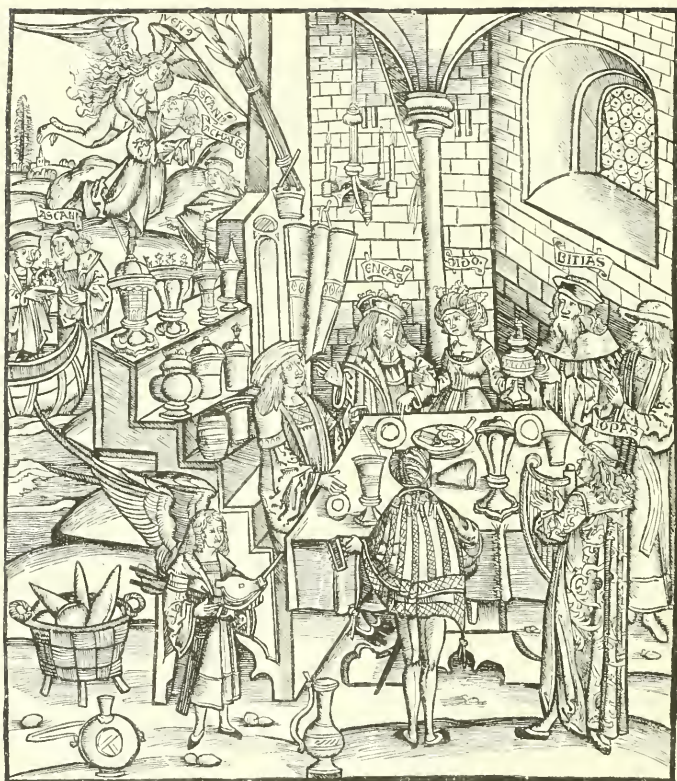 VENꝰ
ASCANI
ACHATES
ASCANI
ENEAS
DIDO
BITIAS
IOPAS